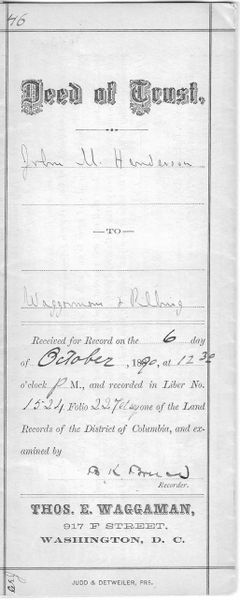 46
Deed of Trust,
John M. Henderson
—TO—
Waggaman &
Received for Record on the 6 day
of October, 1890, at 12 30
o'clock P M., and recorded in Liber No.
1524 Folio 227 et seq one of the Land
Records of the District of Columbia, and ex-
amined by
B. K. Bruce
Recorder.
THOS. E. WAGGAMAN,
917 F STREET,
WASHINGTON, D. C.
JUDD & DETWEILER, PRS.